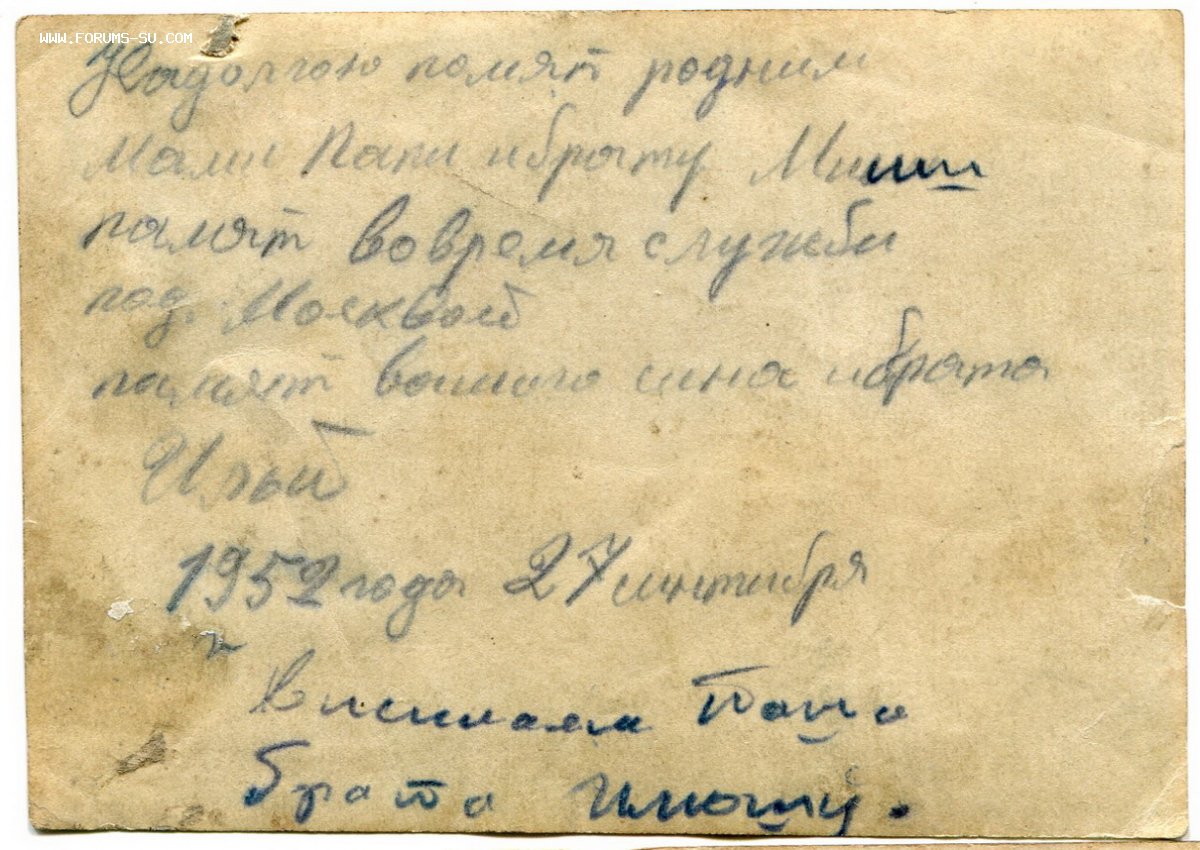 WWW.FORUMS-SU.COM
Надолгою памят родним
Мами Папи и брату Миши
памят во время служби
под Москвой
памят вашого сина и брата
Ильи
1952 года 27 синтября
Висилаям Ваша
брата Илюшу.